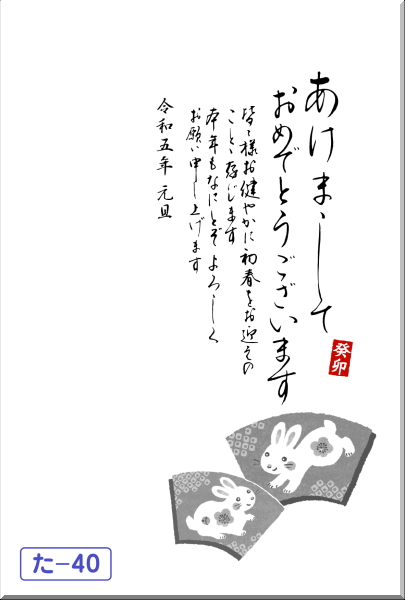 あけまして
おめでとうございます
皆々様お健やかに初春をお迎えの
こととゝ存じます
本年もなにとぞよろしく
お願い申し上げます
令和五年 元旦
癸卯
た-40